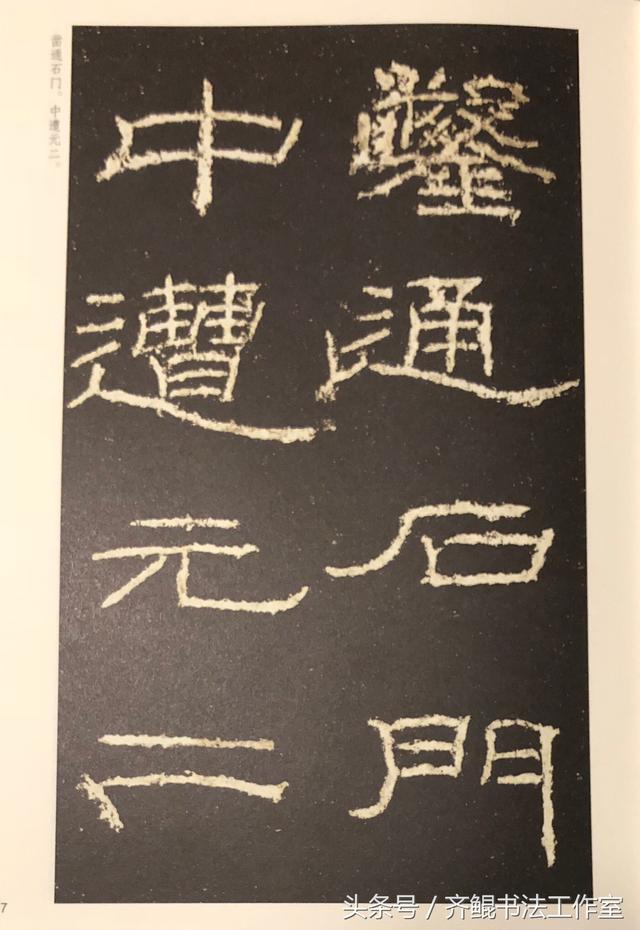 鑿通石門
中遭元二
凿通石门。中遭元二。
7
头条号／齐鲲书法工作室